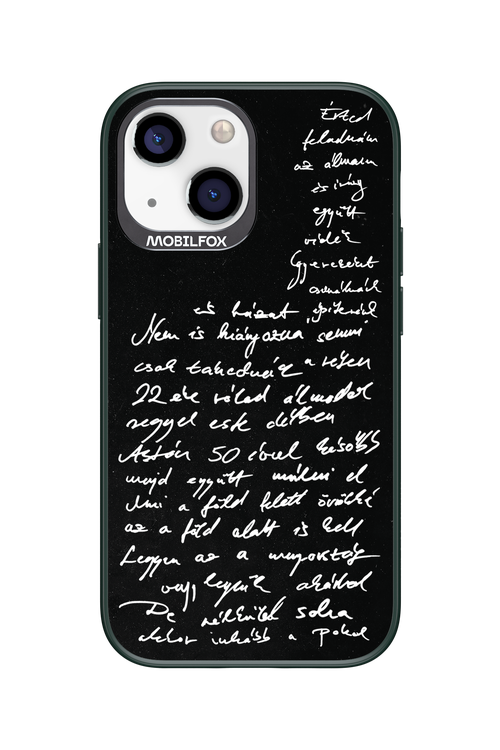 MOBILFOX
Érted
feladnám
az álmaim
és így
együtt
vidék
Gyereket
csinálnánk
és házat építenénk
Nem is hiányozna semmi
csak takednék a réten
22 éve rólad álmodok
reggel este délben
Aztán 50 évvel később
majd együtt múlni el
Ami a föld felett örökké
az a föld alatt is kell
Legyen az a mennyország
vagy legyünk akárhol
De nélküled soha
akkor inkább a pokol